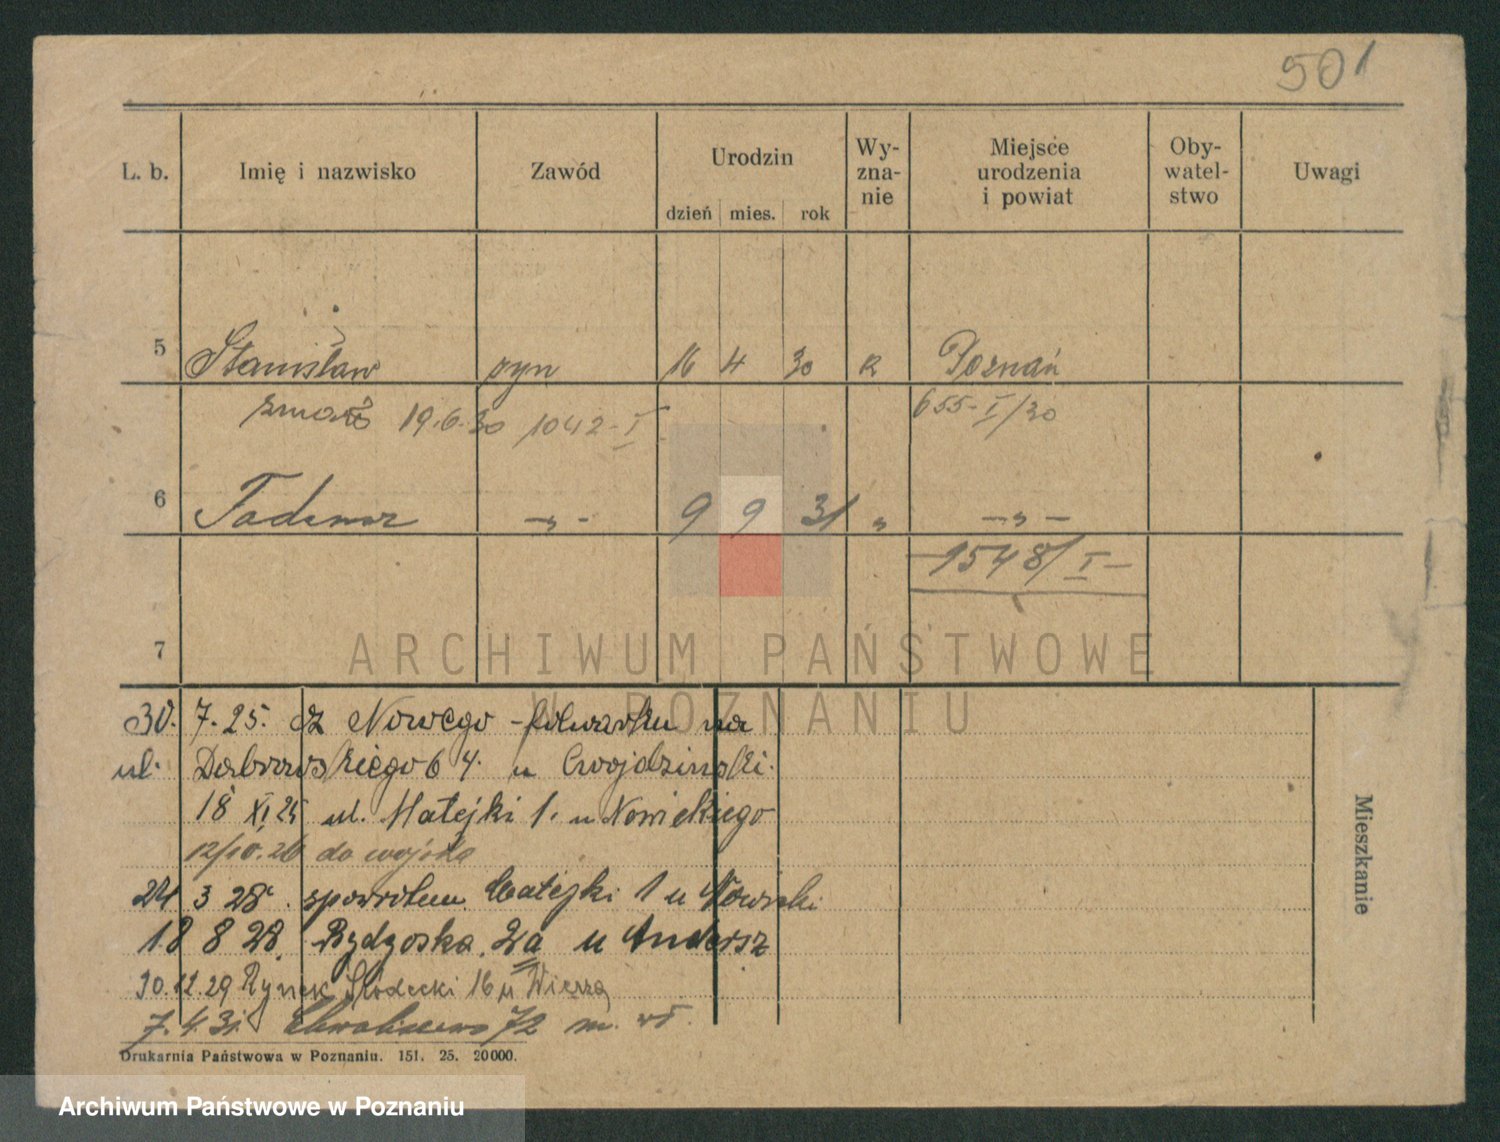 501
L. b. Imię i nazwisko Zawód Urodzin dzień mies. rok Wy-zna-nie Miejsce urodzenia i powiat Oby-watel-stwo Uwagi
5 Stanisław syn 16 4 30 R Poznań
zmarł 19.6.30 1042-I 655-I/30
6 Tadeusz -„- 9 9 31 „ -„-
-1548/I-
7
ARCHIWUM PAŃSTWOWE
W POZNANIU
30. 7. 25. z Nowego-folwarku na
ul. Dąbrowskiego 64. u Cwojdzinski.
18 XI 25 ul. Matejki 1. u Nowickiego
12/10.26 do wojska
24 3 28. spowrotem Matejki 1 u Nowicki
18 8 28. Bydgoska 2a u Andersz
30.12.29 Rynek Śródecki 16 u Wierzą
7.4.31 72 m. wł.
Mieszkanie
Drukarnia Państwowa w Poznaniu. 151. 25. 20000.
Archiwum Państwowe w Poznaniu